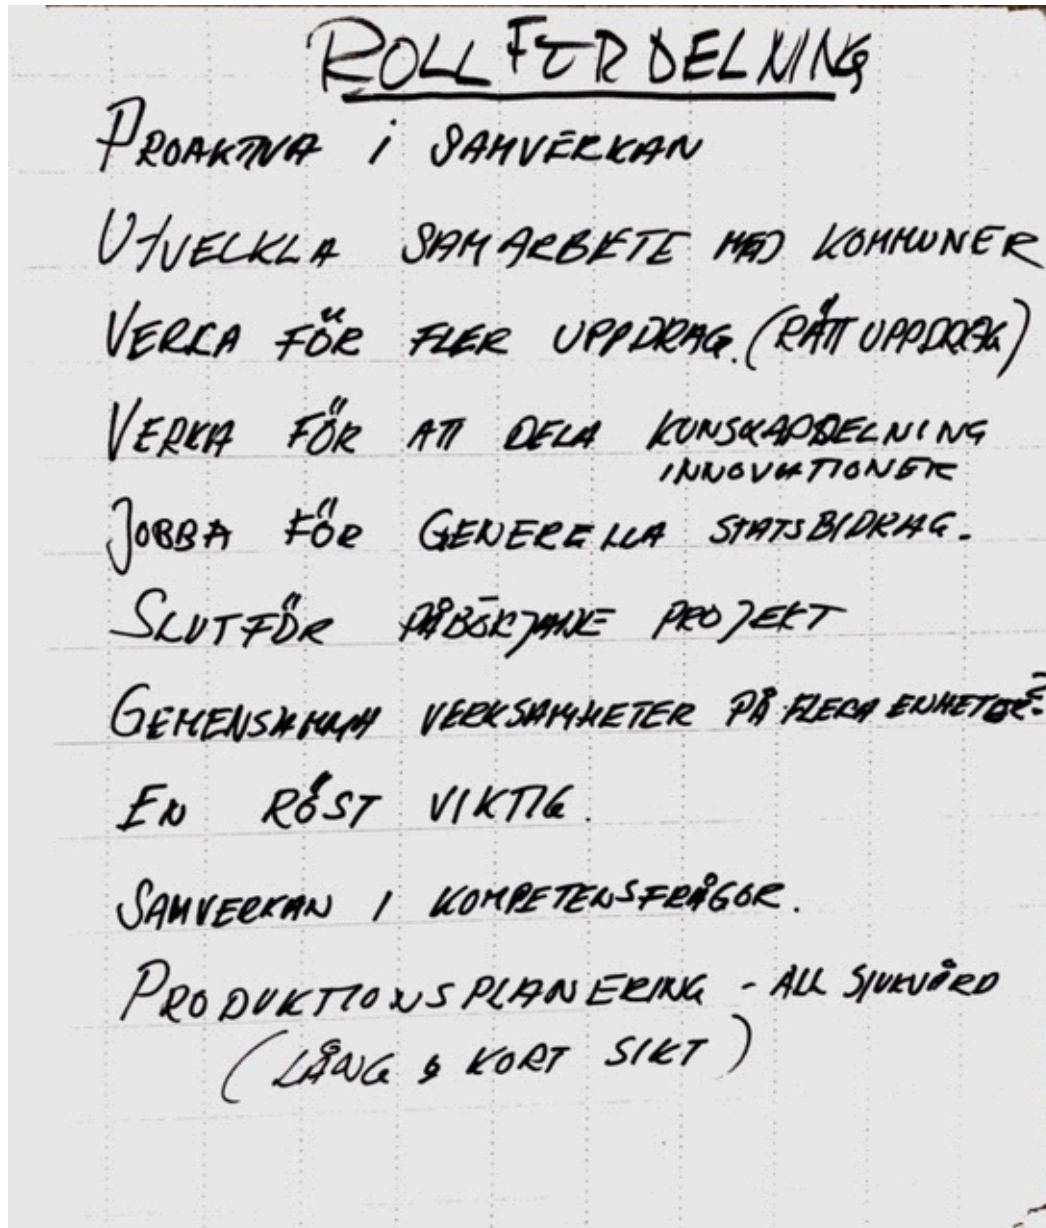 ROLLFÖRDELNING
PROAKTIVA i SAMVERKAN
UTVECKLA SAMARBETE MED KOMMUNER
VERKA FÖR FLER UPPDRAG. (RÄTT UPPDRAG)
VERKA FÖR ATT DELA KUNSKAPDELNING
INNOVATIONER
JOBBA FÖR GENERELLA STATSBIDRAG.
SLUTFÖR PROJEKT
GEMENSAMMA VERKSAMHETER PÅ FLERA ENHETER?
EN RÖST VIKTIG.
SAMVERKAN I KOMPETENSFRÅGOR.
PRODUKTIONSPLANERING - ALL SJUKVÅRD
(LÅNG & KORT SIKT)